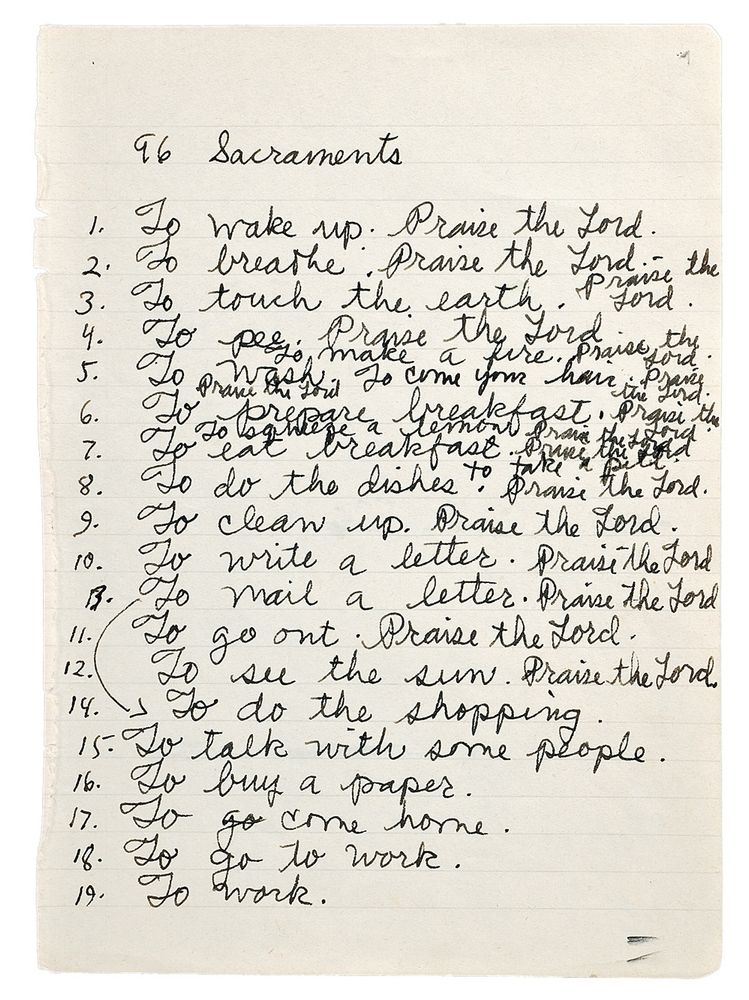 96 Sacraments
1. To wake up. Praise the Lord.
2. To breathe. Praise the Lord.
3. To touch the earth. Praise the Lord.
4. To pee. Praise the Lord
To make a fire. Praise the Lord.
5. To wash. To come your hair. Praise the Lord.
Praise the Lord
6. To prepare breakfast. Praise the Lord.
To squieze a lemon Praise the Lord
7. To eat breakfast. Praise the Lord
to take a pill.
8. To do the dishes. Praise the Lord.
9. To clean up. Praise the Lord.
10. To write a letter. Praise the Lord
13. To mail a letter. Praise the Lord
11. To go out. Praise the Lord.
12. To see the sun. Praise the Lord.
14. To do the shopping.
15. To talk with some people.
16. To buy a paper.
17. To go come home.
18. To go to work.
19. To work.